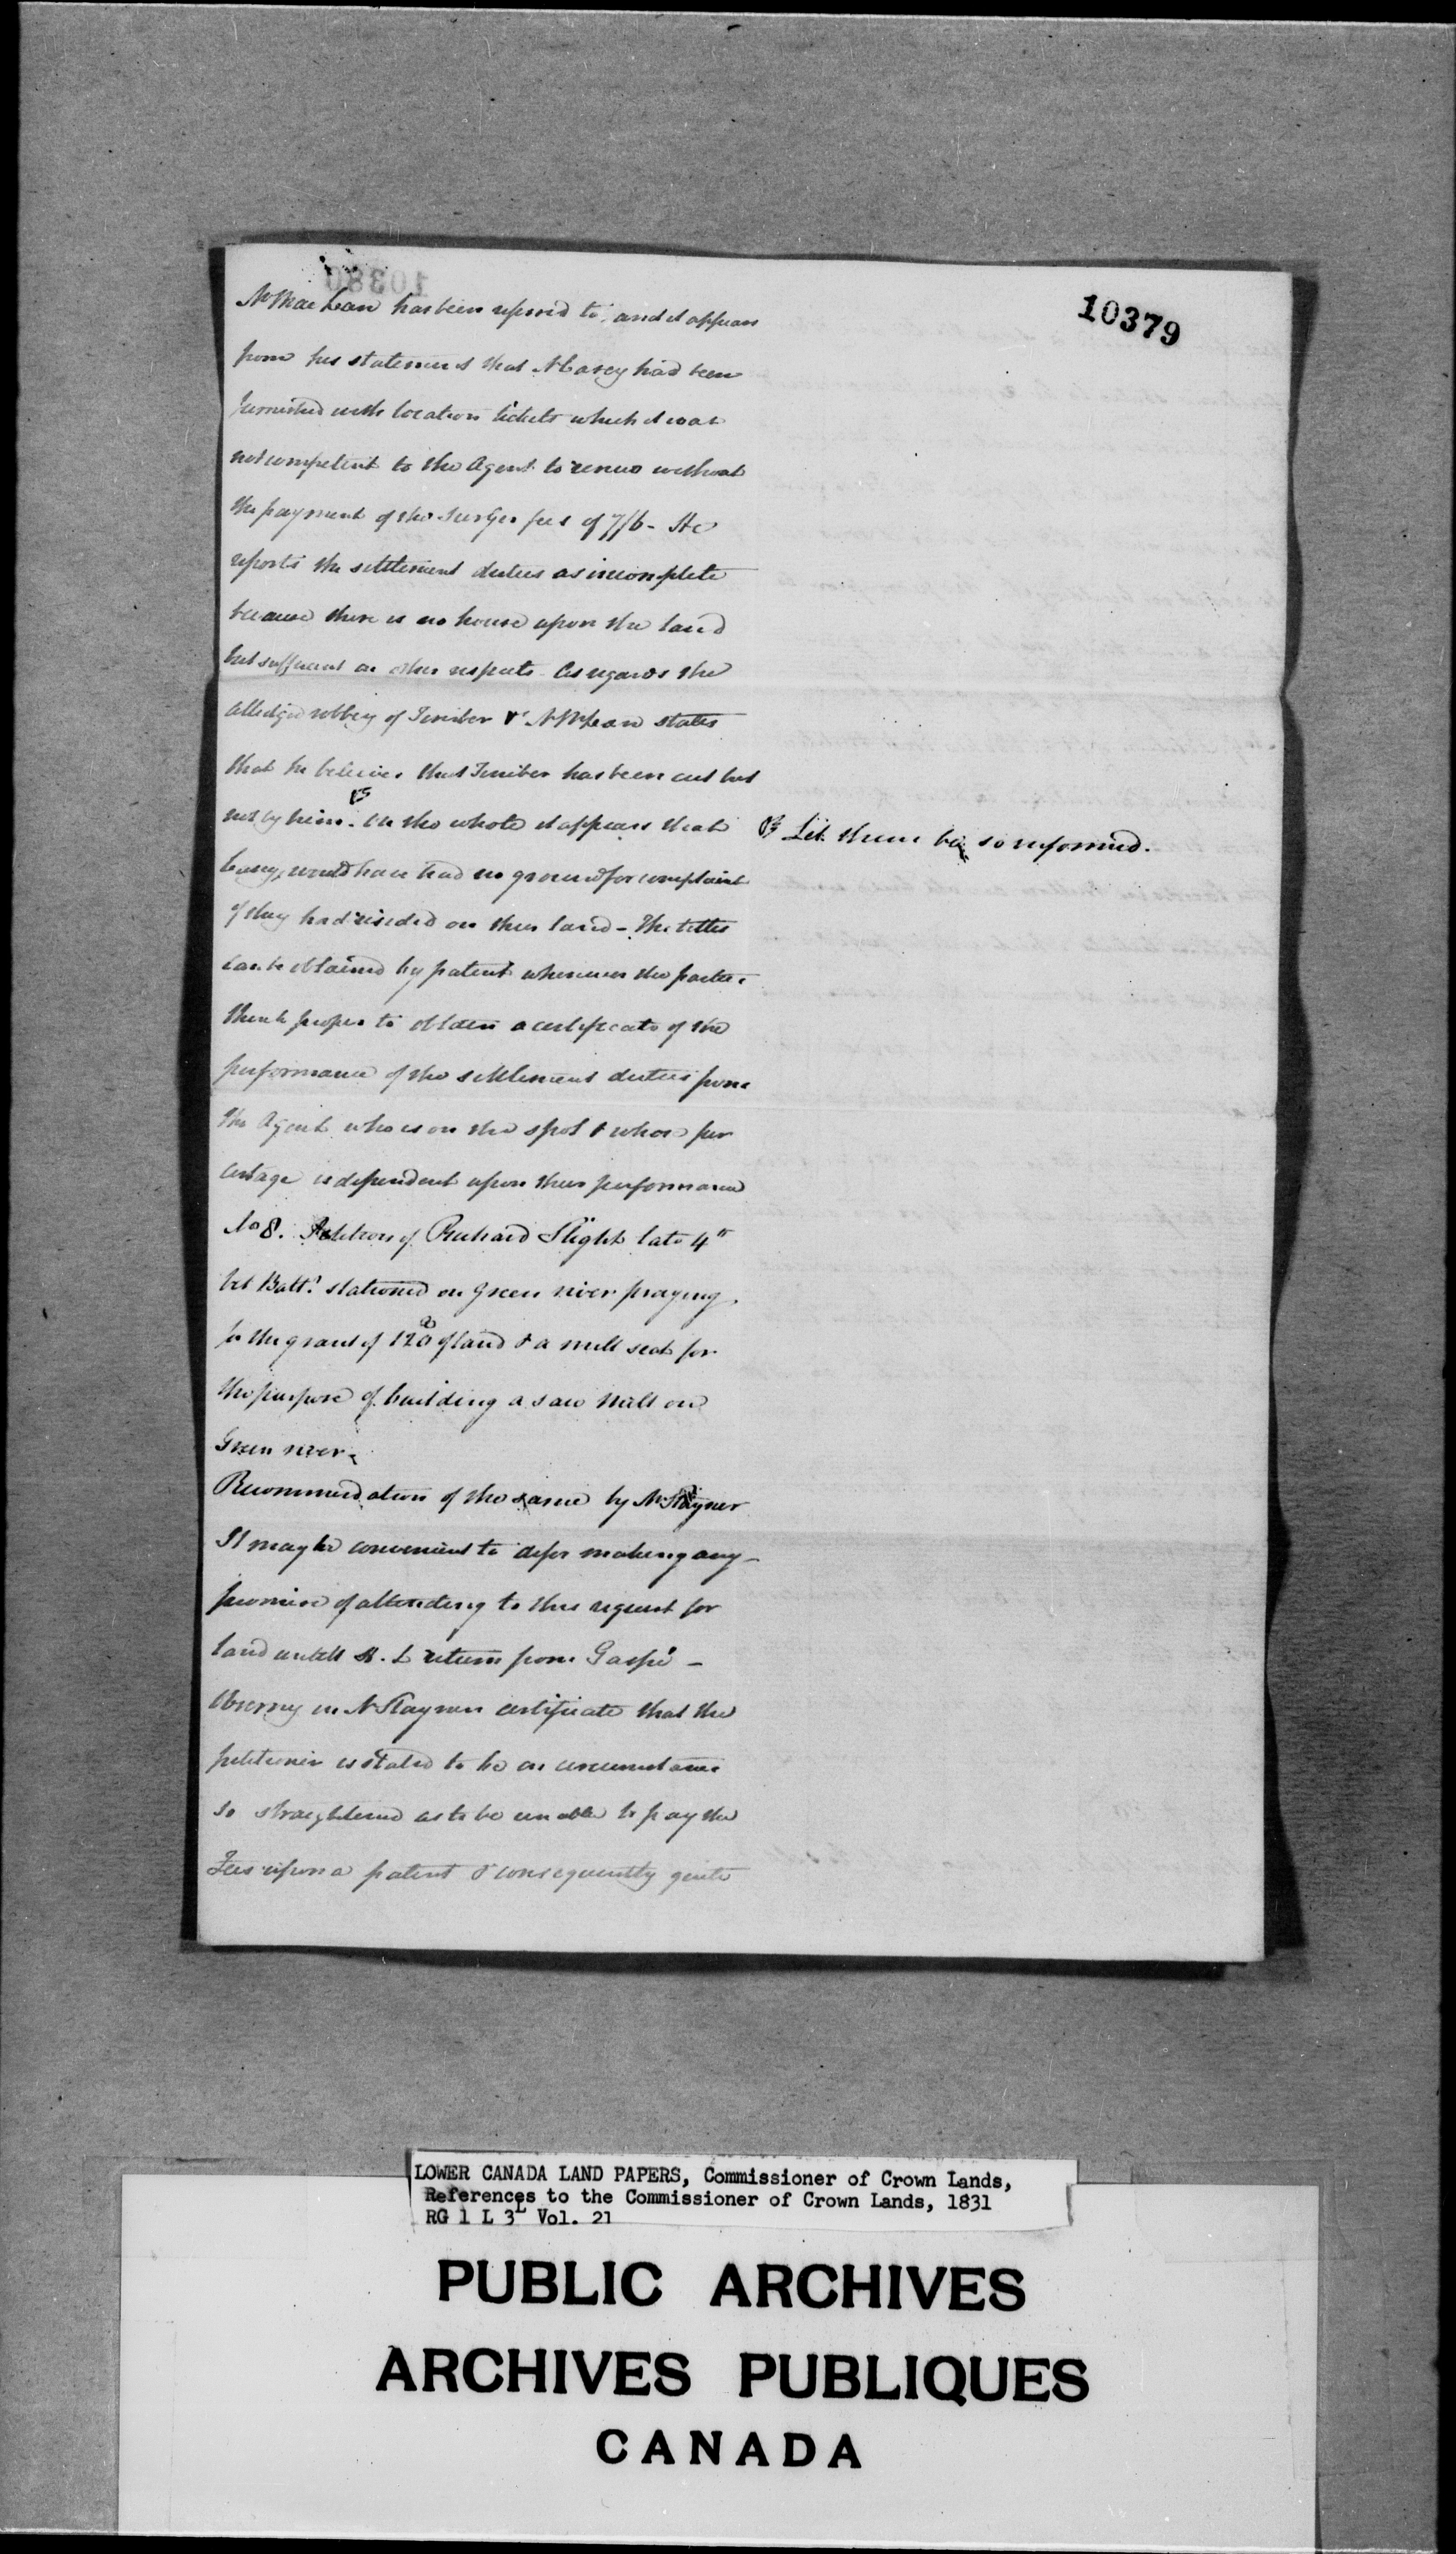 10379
Mr MacLean has been referred to, and it appears
from his statement that Mr Carey had been
furnished with location tickets which it was
not competent to the Agent to renew without
the payment of the Surgr fees of 7/6 - He
reports the settlement duties as incomplete
because there is no house upon the land
but sufficient in other respects. As regards the
alledged robbery of Timber Mr McLean states
that he believes that Timber has been cut but
not by him. On the whole it appears that
Carey would have had no ground for complaint
if they had resided on their land - The titles
can be obtained by patent whenever the parties
think proper to obtain a certificate of the
performance of the settlement duties from
the Agent who is on the spot & whose per
centage is dependent upon their performance
Let them be so informed.
No 8. Petition of Richard Slight late 4th
Vet Battn stationed on Green river praying
for the grant of 120 a of land & a mill seat for
the purpose of building a saw Mill on
Green river.
Recommendation of the same by Mr Stayner
It may be convenient to defer making any
promise of attending to this request for
land untill return from Gaspé -
Observing in Mr Stayners certificate that the
petitioner is stated to be in circumstances
so straightened as to be unable to pay the
Fees upon a patent & consequently quite
LOWER CANADA LAND PAPERS, Commissioner of Crown Lands,
References to the Commissioner of Crown Lands, 1831
RG 1 L 3L Vol. 21
PUBLIC ARCHIVES
ARCHIVES PUBLIQUES
CANADA